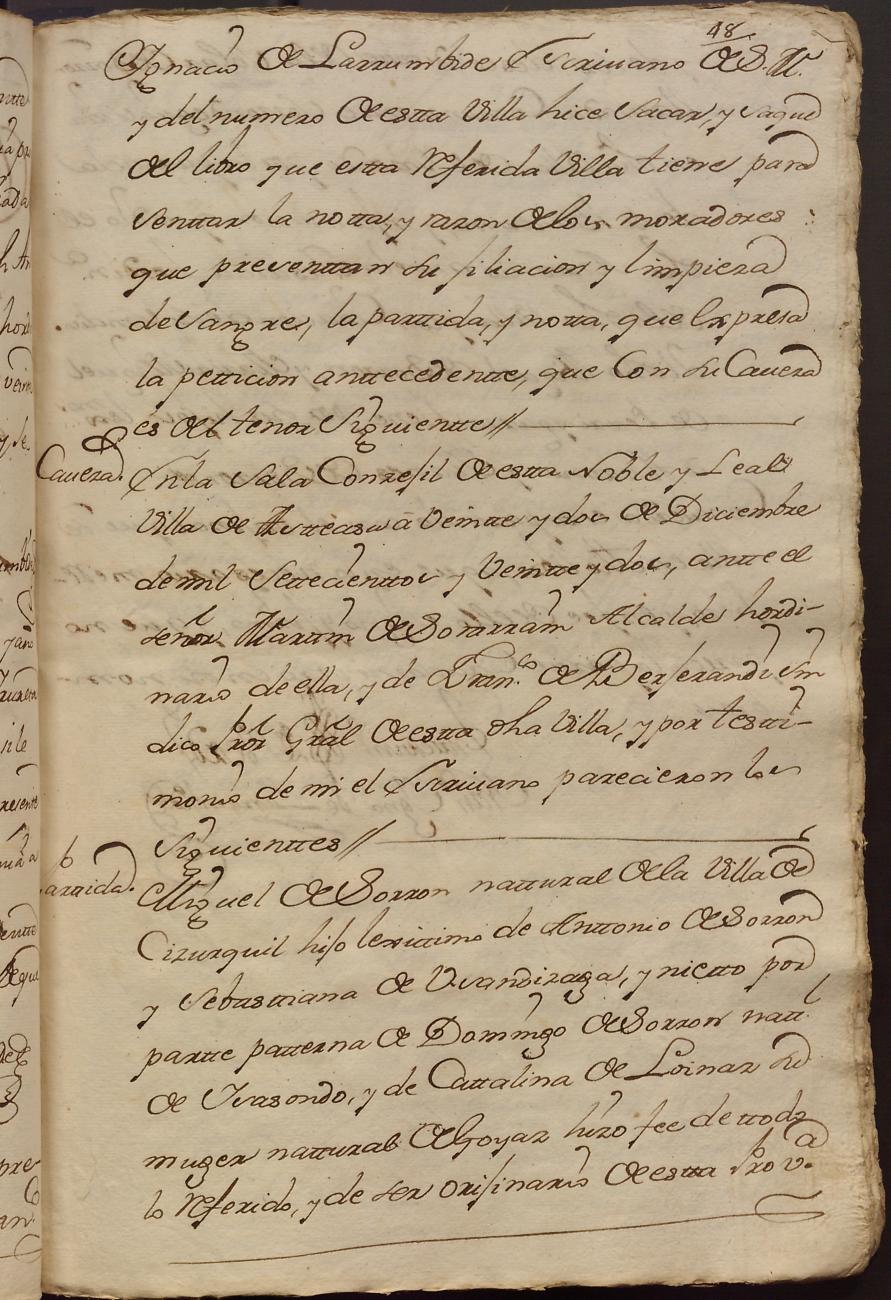 48
Ignacio de Larrumbide Escriuano de S. M.
y del numero de estta Villa hice Sacar, y saque
del libro que estta Referida Villa tiene para
senttar la notta, y razon de los moradores
que presenttan su filiacion y limpieza
de Sangre, la parttida, y notta, que Expresa
la petticion anttecedentte, que Con su Caueza
es del tenor Siguientte //
Caueza. En la Sala Consejil de estta Noble y Leal
Villa de Astteasu â Veintte y dos de Diciembre
de mil Settecienttos y Veintte y dos, antte el
señor Marttin de Sorarrain Alcalde hordi-
nario de ella, y de Fran.co de Berserandi Sin
dico Pror Gral de estta dha Villa, y por testti-
monio de mi el Escriuano parecieron los
Siguienttes //
Parttida. Miguel de Sorron nattural de la Villa de
Cizurquil hijo lexittimo de Anttonio de Sorron
y Sebasttiana de Vsandizaga, y nietto por
partte patterna de Domingo de Sorron natt.l
de Ysasondo, y de Cattalina de Loinaz su
muger nattural de Goyaz hizo fee de ttodo
lo Referido, y de ser orijinario de estta Prov.a